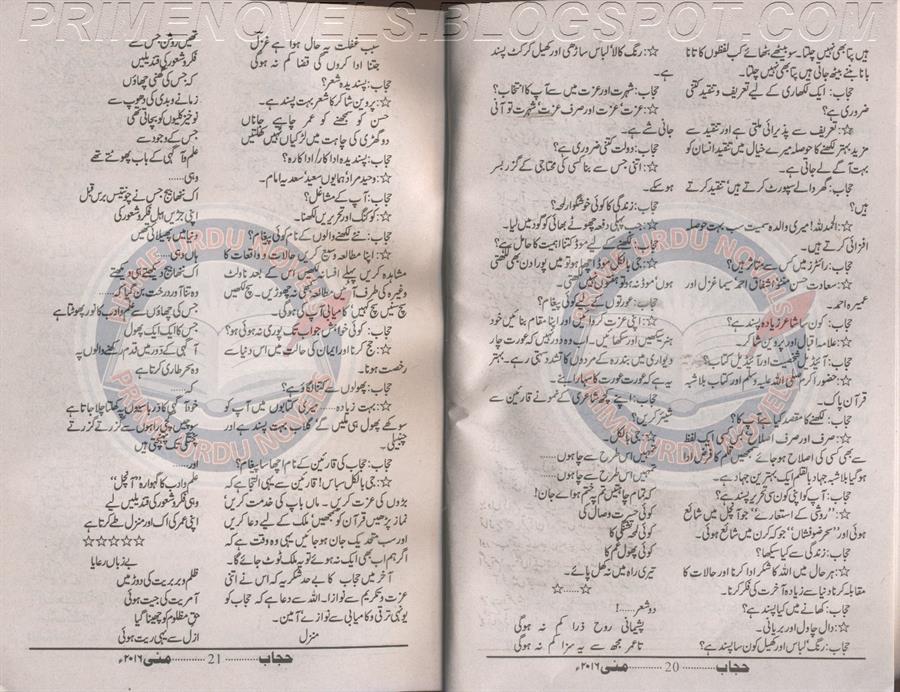 PRIMENOVELS.BLOGSPOT.COM
ہیں پتا بھی نہیں چلتا۔ سو بیٹھے بٹھائے کب لفظوں کا تانا
بانا بننے بیٹھ جاتی ہیں پتا بھی نہیں چلتا۔
حجاب: ایک لکھاری کے لیے تعریف و تنقید کتنی
ضروری ہے؟
☆: تعریف سے پذیرائی ملتی ہے اور تنقید سے
مزید بہتر لکھنے کا حوصلہ میرے خیال میں تنقید انسان کو
بہت آگے لے جاتی ہے۔
حجاب: گھر والے سپورٹ کرتے ہیں، تنقید کرتے
ہیں؟
☆: الحمدللہ! میری والدہ سمیت سب بہت حوصلہ
افزائی کرتے ہیں۔
حجاب: رائٹرز میں کس سے متاثر ہیں؟
☆: سعادت حسن منٹو، اشفاق احمد، سیما غزل اور
عمیرہ احمد۔
حجاب: کون سا شاعر زیادہ پسند ہے؟
☆: علامہ اقبال اور پروین شاکر۔
حجاب: آئیڈیل شخصیت اور آئیڈیل کتاب؟
☆: حضور اکرم صلی اللہ علیہ وسلم اور کتاب بلاشبہ
قرآن پاک۔
حجاب: لکھنے کا مقصد کیا ہے آپ کا؟
☆: صرف اور صرف اصلاح جس میں ایک لفظ
سے بھی کسی کی اصلاح ہو جائے سمجھیں قلم کا فرض ادا
ہو گیا بلاشبہ جہاد بالقلم ایک بہترین جہاد ہے۔
حجاب: آپ کو اپنی کون سی تحریر پسند ہے؟
☆: ”روشنی کے استعارے“ جو آنچل میں شائع
ہوئی اور ”سحر ضوفشاں“ جو کہ کرن میں شائع ہوئی۔
حجاب: زندگی سے کیا سیکھا؟
☆: ہر حال میں اللہ کا شکر ادا کرنا اور حالات کا
مقابلہ کرنا دنیا سے زیادہ آخرت کی فکر کرنا۔
حجاب: کھانے میں کیا پسند ہے؟
☆: دال چاول اور بریانی۔
حجاب: رنگ، لباس اور کھیل کون سا پسند ہے؟
☆: رنگ کالا، لباس ساڑھی اور کھیل کرکٹ پسند
ہے۔
حجاب: شہرت اور عزت میں سے آپ کا انتخاب؟
☆: عزت، عزت اور صرف عزت، شہرت تو آنی
جانی شے ہے۔
حجاب: دولت کتنی ضروری ہے؟
☆: اتنی جس سے بنا کسی کی محتاجی کے گزر بسر
ہو سکے۔
حجاب: زندگی کا کوئی خوشگوار لمحہ؟
☆: جب پہلی دفعہ چھوٹے بھائی کو گود میں لیا۔
حجاب: لکھنے کے لیے موڈ کتنا اہمیت کا حامل ہے؟
☆: جی بالکل موڈ اچھا ہو تو میں پورا دن بھی لکھتی
حجاب: عورتوں کے لیے کوئی پیغام؟
☆: اپنی عزت کروائیں اور اپنا مقام بنائیں خود
سیکھیں اور سکھائیں۔ اب وہ دور نہیں کہ عورت چار
دیواری میں بند رہ کے مردوں کا تشدد سہتی رہے۔ بہتر
یہ ہے کہ عورت عورت کا سہارا بنے۔
حجاب: اپنے کچھ شاعری کے نمونے قارئین سے
شیئر کریں؟
☆: جی بالکل۔
تمہیں اس طرح سے چاہوں......
تمہیں اس طرح سے چاہوں......
کہ تمام چاہتیں تم پہ ختم ہو اے جان!
کوئی حسرت وصال کی
کوئی لمحہ تشنگی کا
کوئی پھول غم کا
تیری راہ میں نہ کھل پائے۔
☆......☆
دو شعر......!
پشیمانی روح ذرا کم نہ ہوگی
تاعمر مجھ سے یہ سزا کم نہ ہوگی
حجاب .......... 20 .......... مئی ۲۰۱۶ء
سبب غفلت یہ حال ہوا ہے غزلؔ
جتنا ادا کروں گی قضا کم نہ ہوگی
حجاب: پسندیدہ شعر؟
☆: پروین شاکر کا شعر بہت پسند ہے۔
حسن کو سمجھنے کو عمر چاہیے جاناں
دو گھڑی کی چاہت میں لڑکیاں نہیں کھلتیں
حجاب: پسندیدہ اداکار/ اداکارہ؟
☆: وحید مراد، ہمایوں سعید، سعدیہ امام۔
حجاب: آپ کے مشاغل؟
☆: کوکنگ اور تحریریں لکھنا۔
حجاب: نئے لکھنے والوں کے نام کوئی پیغام؟
☆: اپنا مطالعہ وسیع کریں حالات و واقعات کا
مشاہدہ کریں پہلے افسانہ لکھیں اس کے بعد ناولٹ
وغیرہ کی طرف آئیں مطالعہ بھی نہ چھوڑیں۔ سچ لکھیں
سچ میں سچ نہیں، کامیابی آپ کی ہوگی۔
حجاب: کوئی خواہش جو اب تک پوری نہ ہوئی ہو؟
☆: حج کرنا اور ایمان کی حالت میں اس دنیا سے
رخصت ہونا۔
حجاب: پھولوں سے کتنا لگاؤ ہے؟
☆: بہت زیادہ...... میری کتابوں میں آپ کو
سوکھے پھول ہی ملیں گے گلاب بہت پسند ہے اور
چنبیلی۔
حجاب: حجاب کی قارئین کے نام اچھا سا پیغام؟
☆: جی بالکل سب اس! قارئین سے یہی التجا ہے کہ
بڑوں کی عزت کریں۔ ماں باپ کی خدمت کریں
نماز پڑھیں قرآن کو سمجھیں ملک کے لیے دعا کریں
اور سب متحد یک جان ہو جائیں یہی وہ وقت ہے کہ
اگر ہم اب بھی ایک نہ ہوئے تو یہ ملک ٹوٹ جائے گا۔
آخر میں حجاب کا بے حد شکریہ کہ اس نے اتنی
عزت و تکریم سے نوازا۔ اللہ سے دعا ہے کہ حجاب کو
یونہی ترقی و کامیابی سے نوازے، آمین۔
منزل
تھیں روشن جس سے
فکر و شعور کی قندیلیں
کہ جس کی گھنی چھاؤں
زمانے و بدی کی دھوپ سے
نوخیز کلیوں کو بچاتی تھی
جس کے وجود سے
علم و آگہی کے باب پھوٹتے تھے
وہی......
اک ننھا بیج جس نے چونتیس برس قبل
اپنی جڑیں اہل فکر و شعور کی
دنیا میں پھیلائی تھیں
ہاں وہی......
اک ننھا بیج دیکھتے ہی دیکھتے
وہ تناور درخت بن گیا کہ
جس کی چھاؤں سے علم و ادب کا نور پھوٹتا ہے
جس کا ایک ایک پھول
آگہی کے در میں قدم رکھنے والوں پہ
وہ سحر طاری کرتا ہے
کہ......
خود آگہی کا در باسیوں پہ کھلتا چلا جاتا ہے
سوچیں پکی راہوں سے گزرتے گزرتے
پختگی تک پہنچتی ہیں
اور......
علم و ادب کا گہوارہ ”آنچل“
وہی فکر و شعور کی قندیلیں لیے
اپنی عمر کی اک اور منزل طے کرتا ہے
☆☆☆☆☆
بے زباں رعایا
ظلم و بربریت کی دوڑ میں
آمریت کی جیت ہوئی
حق مظلوم کو چھینا گیا
ازل سے یہی ریت ہوئی
حجاب .......... 21 .......... مئی ۲۰۱۶ء
PRIME URDU NOVELS
PRIME URDU NOVELS
PRIME URDU NOVELS
PRIME URDU NOVELS